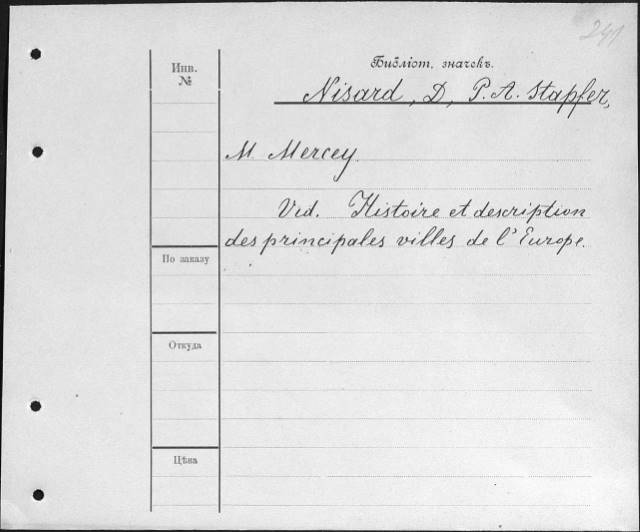 241
Библіот. значекъ.
Инв.
№
Nisard, D, P. A. Stapfer,
M. Mercey.
Vid. Histoire et description
des principales villes de l'Europe.
По заказу
Откуда
Цѣна